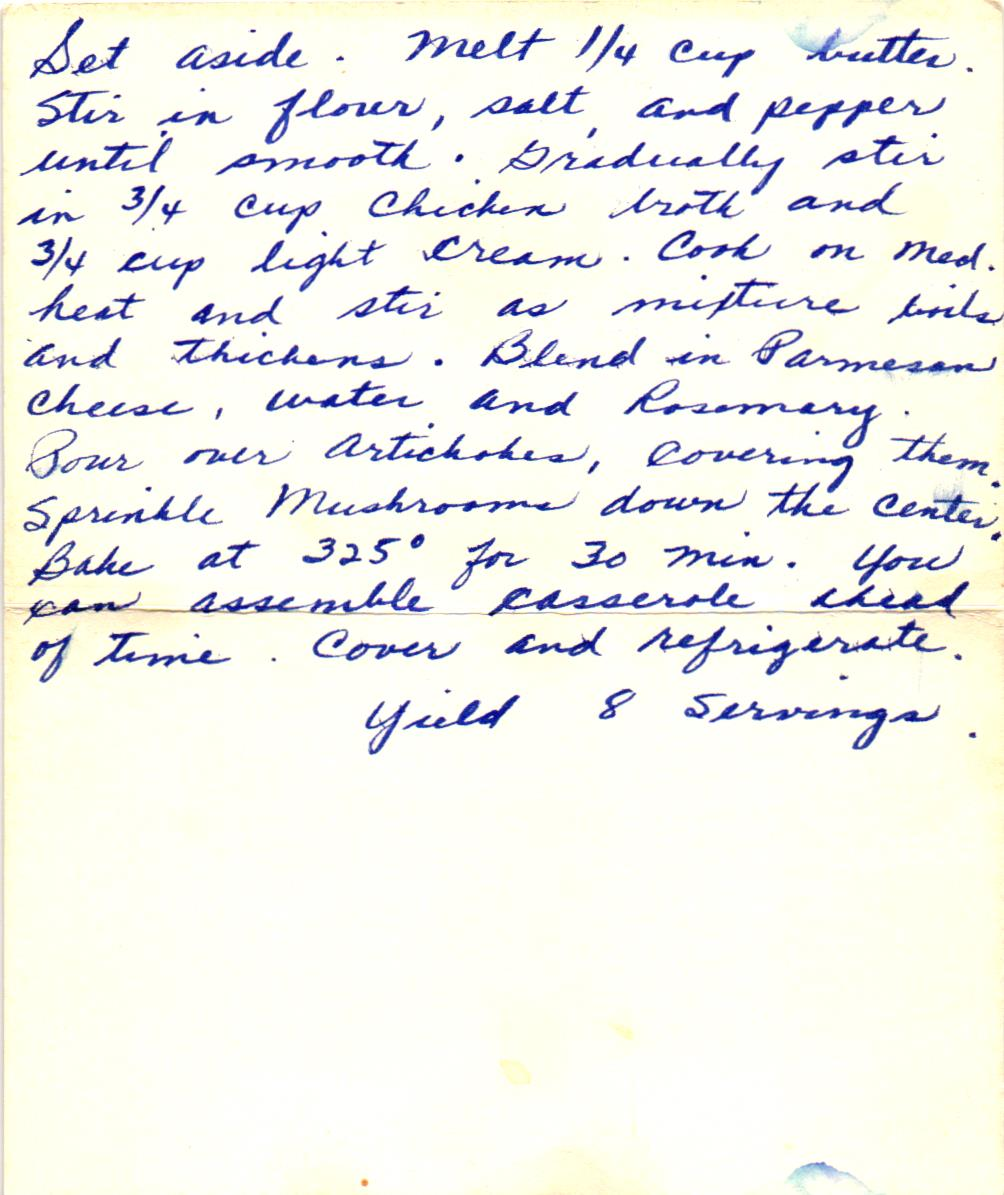 Set aside. Melt 1/4 cup butter.
Stir in flour, salt, and pepper
until smooth. Gradually stir
in 3/4 cup Chicken broth and
3/4 cup light cream. Cook on med.
heat and stir as mixture boils
and thickens. Blend in Parmesan
cheese, water and Rosemary.
Pour over Artichokes, covering them.
Sprinkle Mushrooms down the center.
Bake at 325° for 30 min. You
can assemble casserole ahead
of time. Cover and refrigerate.
Yield 8 Servings.